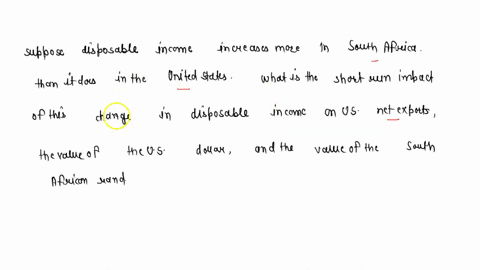 suppose disposable income increases more in South Africa.
than it does in the United States. what is the short run impact
of this change in disposable income on U.S. net exports,
the value of the U.S. dollar, and the value of the South
African rand